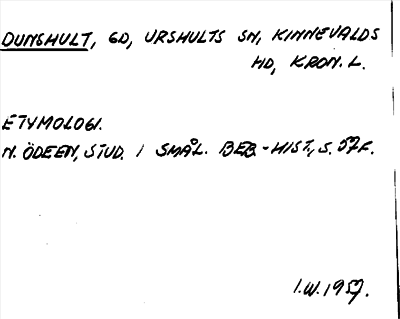 DUNSHULT, GD, URSHULTS SN, KINNEVALDS
HD, KRON. L.
ETYMOLOGI.
N. ÖDEEN, STUD. I SMÅL. BEB-HIST, S. 57F.
I.W. 1957.